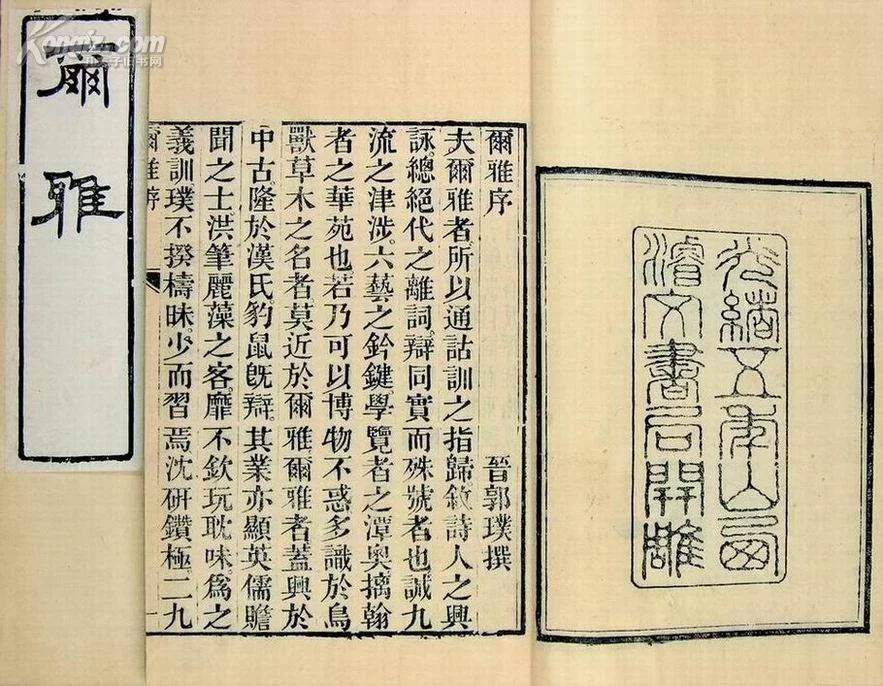 爾雅
Kongfz.com
孔夫子旧书网
光緒五年山西
濬文書局開雕
爾雅序 晉郭璞撰
夫爾雅者。所以通詁訓之指歸。敘詩人之興
詠。總絕代之離詞。辯同實而殊號者也。誠九
流之津涉。六藝之鈐鍵。學覽者之潭奧。摛翰
者之華苑也。若乃可以博物不惑。多識於鳥
獸草木之名者。莫近於爾雅。爾雅者。蓋興於
中古。隆於漢氏。豹鼠旣辯。其業亦顯。英儒贍
聞之士。洪筆麗藻之客。靡不欽玩耽味。爲之
義訓。璞不揆檮昧。少而習焉。沈研鑽極。二九
爾雅序 一